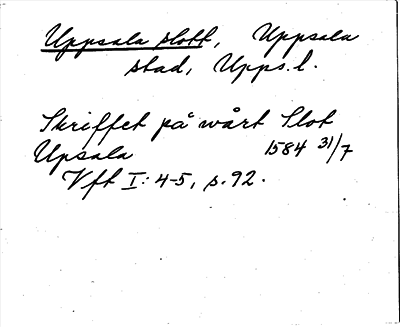 Uppsala slott, Uppsala
stad, Upps.l.
Skriffet på wårt Slot
Upsala 1584 31/7
Vft I: 4-5, s. 92.